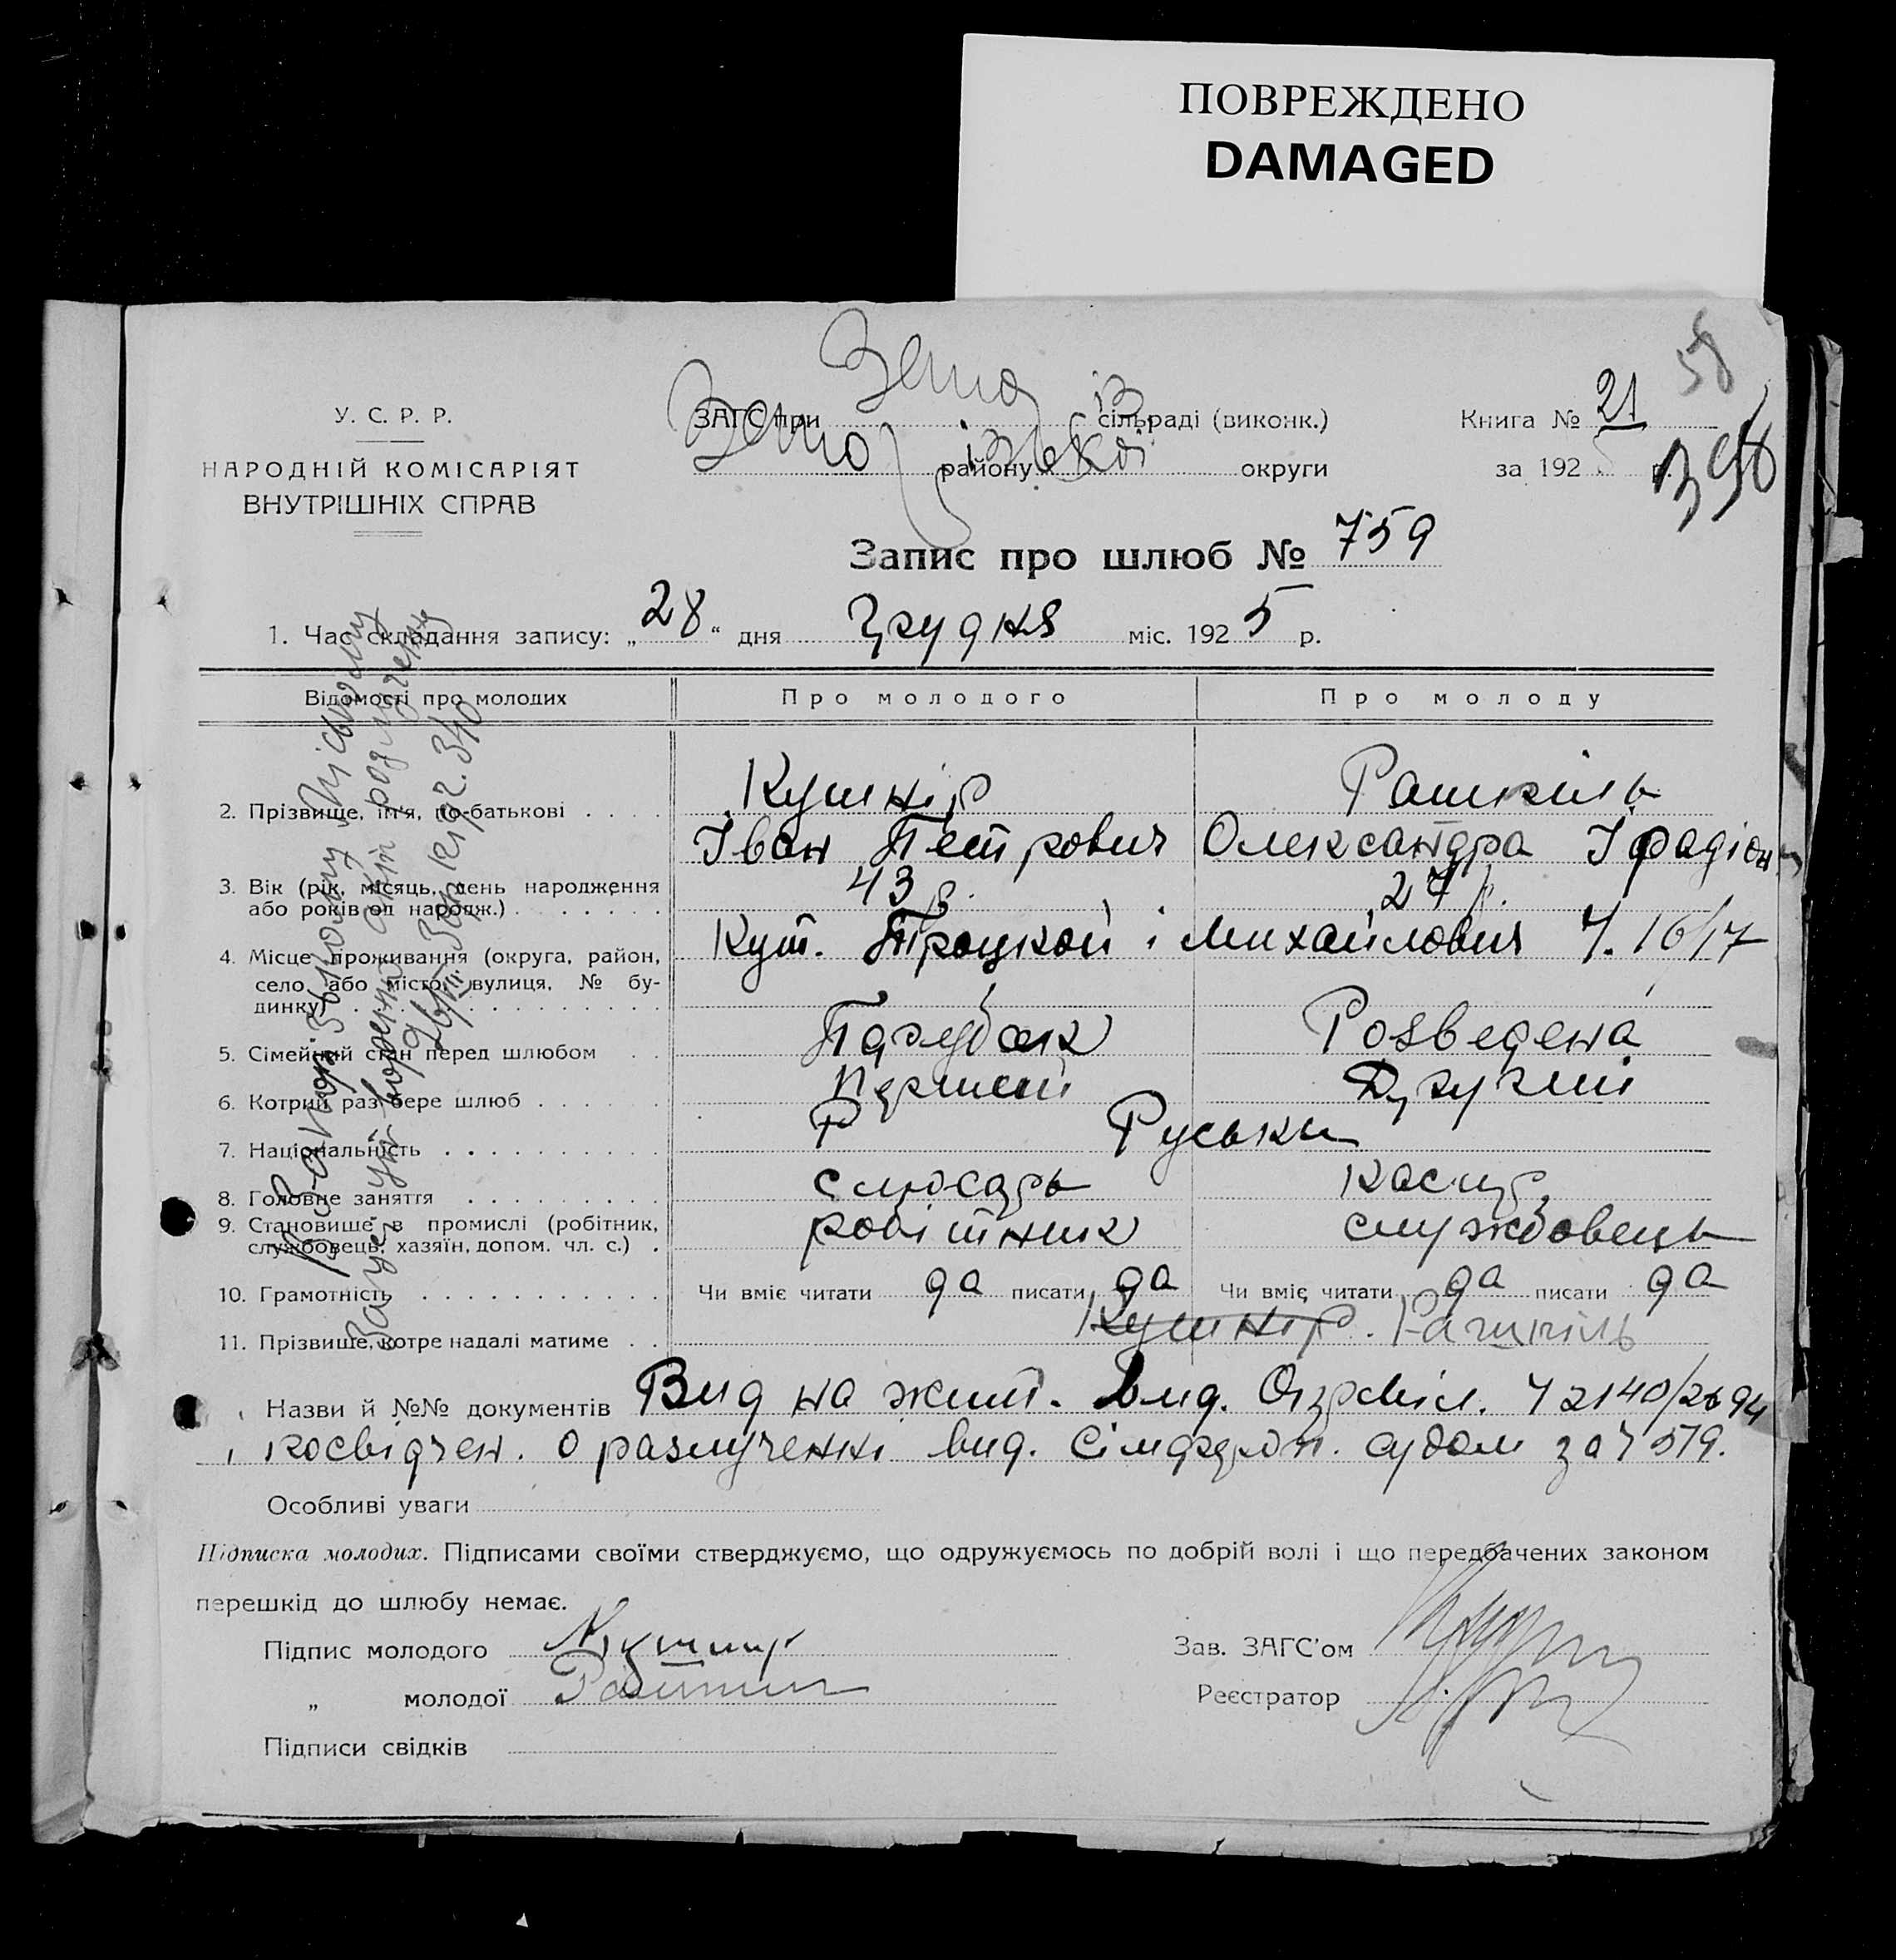 ПОВРЕЖДЕНО
DAMAGED
58
У. С. Р. Р.
НАРОДНІЙ КОМІСАРІЯТ
ВНУТРІШНІХ СПРАВ
ЗАГС при сільраді (виконк.)
району округи
Книга № 21
за 192 р.
Запис про шлюб № 759
1. Час складання запису: „28“ дня Грудня міс. 1925 р.
Відомості про молодих Про молодого Про молоду
2. Прізвище, ім'я, по-батькові . . . . Кушнір Рашкіль
Іван Петрович Олександра
3. Вік (рік, місяць, день народження або років од народж.) . . . . . . 43 р. 27 р.
4. Місце проживання (округа, район, село або місто, вулиця, № будинку) Кут. Троцкой і Михайлович Ч. 16/17
5. Сімейний стан перед шлюбом . . Парубок Розведена
6. Котрий раз бере шлюб . . . . . . Перший Другий
7. Національність . . . . . . . . . . Р Руськи
8. Головне заняття . . . . . . . . . слюсарь касир.
9. Становище в промислі (робітник, службовець, хазяїн, допом. чл. с.) . робітник службовець
10. Грамотність . . . . . . . . . . . Чи вміє читати да писати да Чи вміє читати да писати да
11. Прізвище, котре надалі матиме . . Кушнір. Рашкіль
Назви й №№ документів Вид на жит. Вид. Ч 2140/2694
і посвідчен. о разлученні вид. Сімфероп. судом за Ч 579.
Особливі уваги
Підписка молодих. Підписами своїми стверджуємо, що одружуємось по добрій волі і що передбачених законом
перешкід до шлюбу немає.
Підпис молодого Кушнир Зав. ЗАГС'ом
„ молодої Реєстратор
Підписи свідків